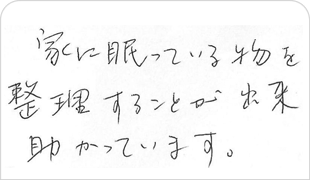 家に眠っている物を
整理することが出来
助かっています。